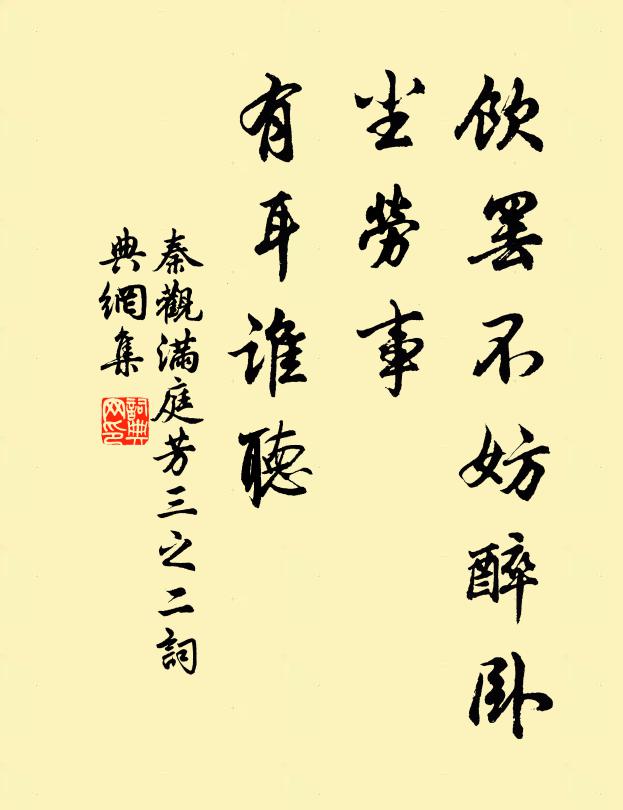 飲罷不妨醉卧
尘勞事
有耳誰聽
秦觀滿庭芳三之二詞
典網集
詞典網印